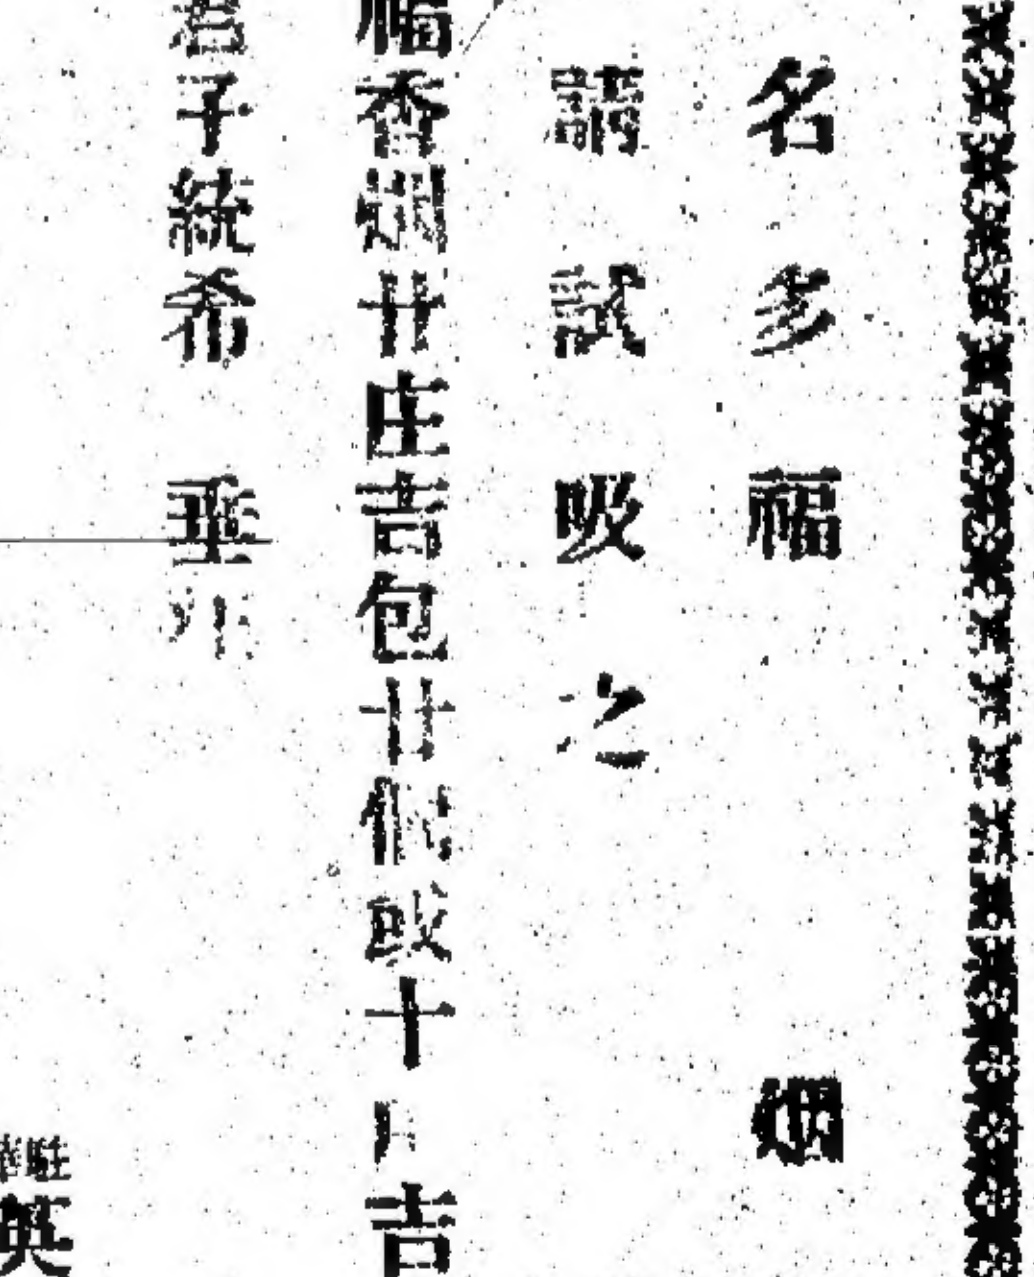 名多福烟
請試吸之
福香烟廿庄吉包廿個或十吉
君子統希垂
駐華英